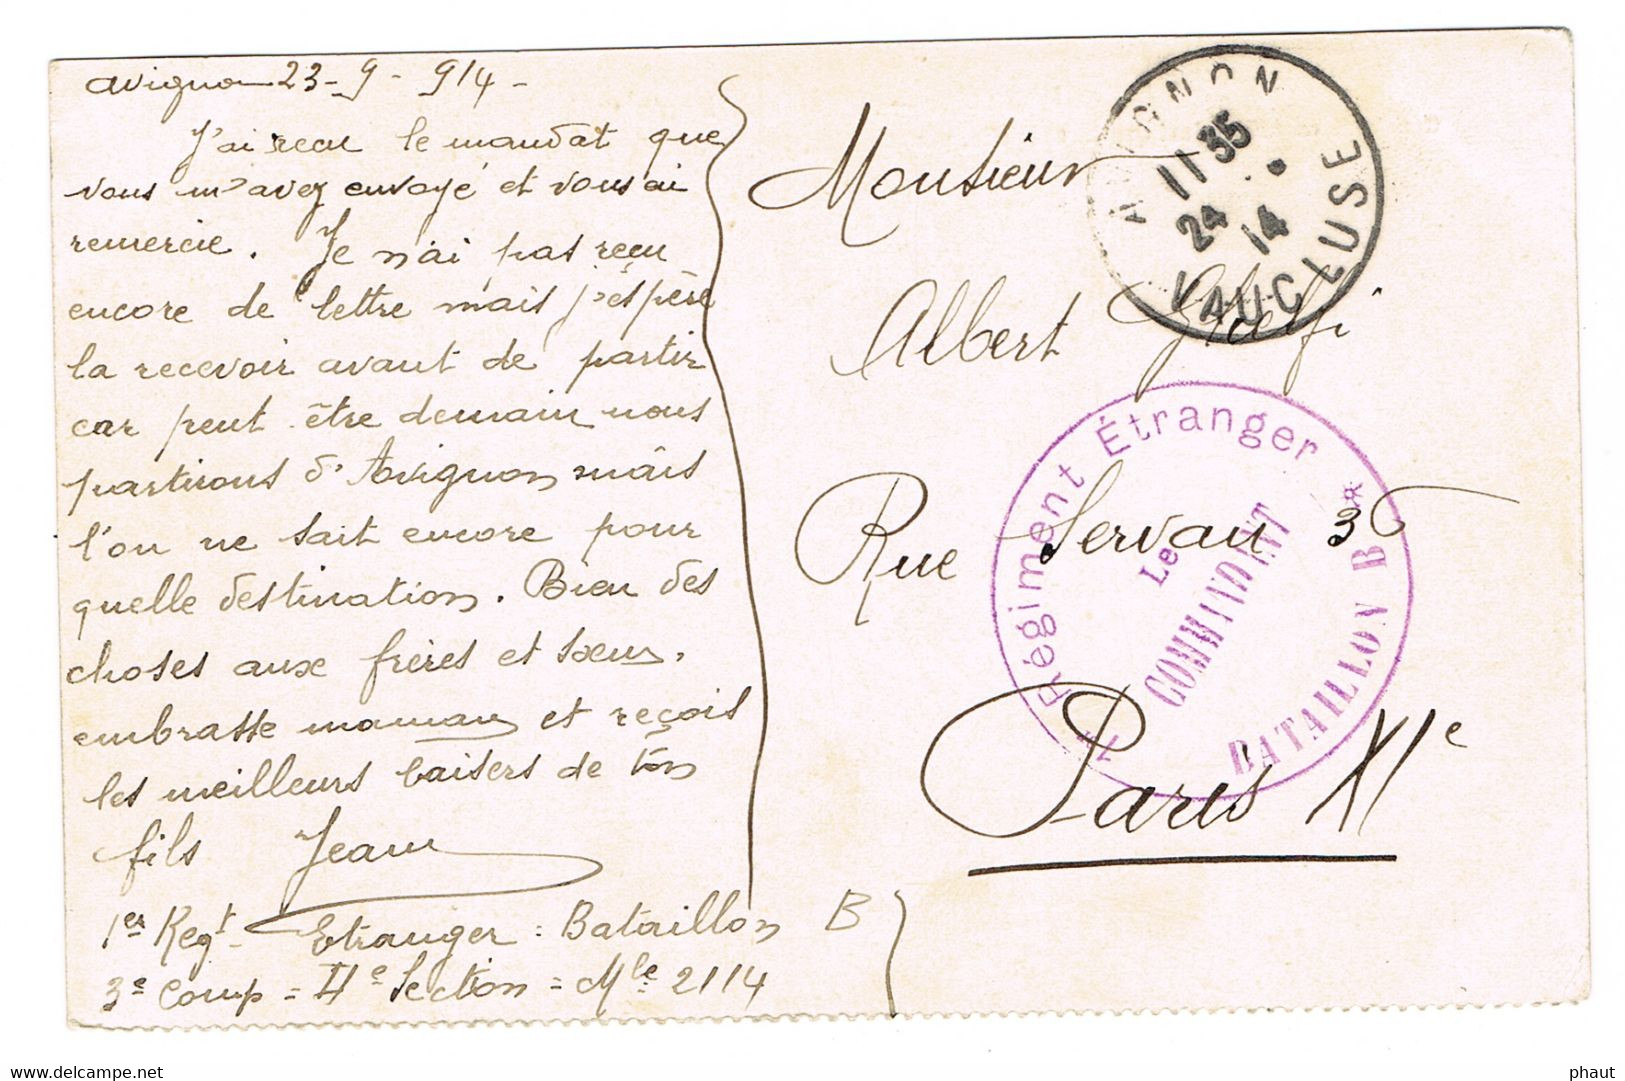 avignon 23-9-914-
J'ai recu le mandat que
vous m'avez envoyé et vous ai
remercie. Je n'ai pas reçu
encore de lettre mais j'éspère
la recevoir avant de partir
car peut être demain nous
partirons d'Avignon mais
l'on ne sait encore pour
quelle destination. Bien des
choses aux frères et sœur,
embrasse maman et reçois
les meilleurs baisers de ton
fils Jean
1er Regt Etranger : Bataillon B
3e Comp = IIe Section = Mle 2114
Monsieur
Albert
Rue Servan 36
Paris XIe
AVIGNON
11 35
24 14
VAUCLUSE
Régiment Étranger
Le
COMMANDANT
BATAILLON B
phaut